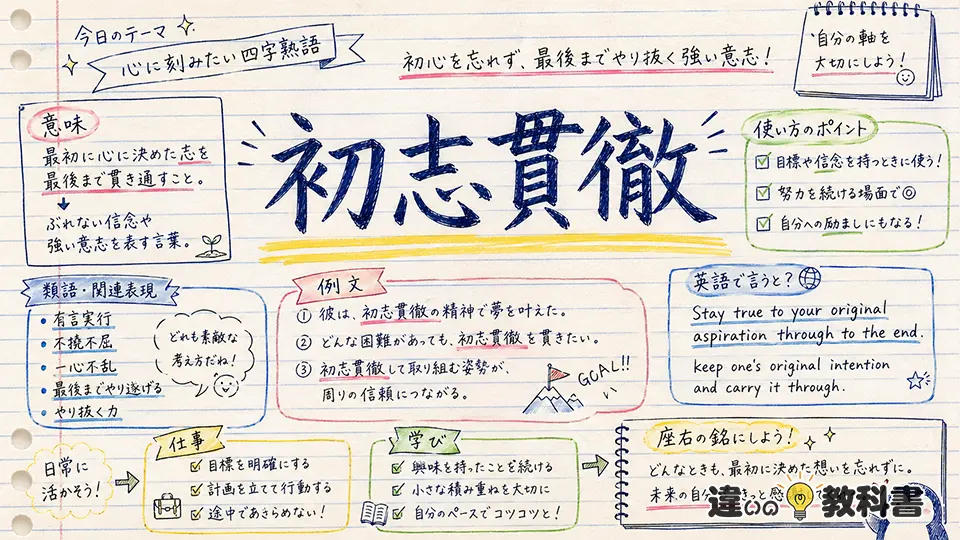 今日のテーマ
心に刻みたい四字熟語
初心を忘れず、最後までやり抜く強い意志!
自分の軸を
大切にしよう!
意味
最初に心に決めた志を
最後まで貫き通すこと。
ぶれない信念や
強い意志を表す言葉。
初志貫徹
使い方のポイント
目標や信念を持つときに使う!
努力を続ける場面で◎
自分への励ましにもなる!
類語・関連表現
・有言実行
・不撓不屈
・一心不乱
・最後までやり遂げる
・やり抜く力
どれも素敵な
考え方だね!
例文
① 彼は、初志貫徹の精神で夢を叶えた。
② どんな困難があっても、初志貫徹を貫きたい。
③ 初志貫徹して取り組む姿勢が、
周りの信頼につながる。
GOAL!!
英語で言うと?
Stay true to your original
aspiration through to the end.
keep one's original intention
and carry it through.
日常に
活かそう!
仕事
目標を明確にする
計画を立てて行動する
途中であきらめない!
学び
興味を持ったことを続ける
小さな積み重ねを大切に
自分のペースでコツコツと!
座右の銘にしよう!
どんなときも、最初に決めた想いを忘れずに。
未来の自分
きっと感
違いの教科書